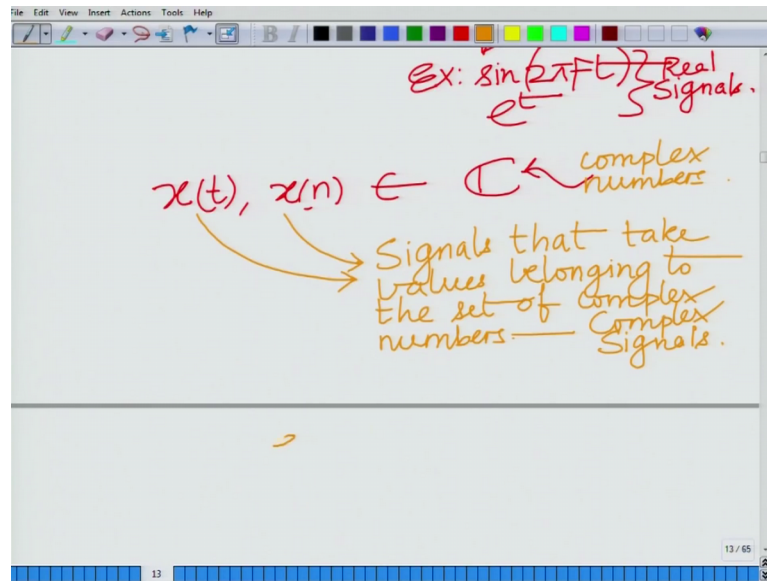 File Edit View Insert Actions Tools Help
B I
Ex: sin(2πFt) } Real
e^t } Signals.
x(t), x(n) ∈ ℂ ← complex
numbers.
Signals that take
values belonging to
the set of complex
numbers — Complex
Signals.
13 / 65
13